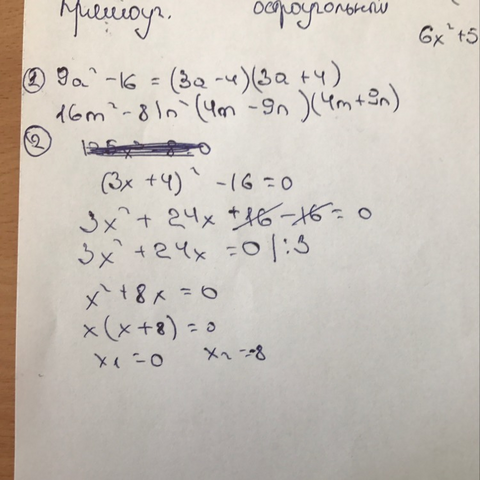 Прямоуг. остроугольный
6x²+5
① 9a² -16 = (3a -4)(3a +4)
16m² -81n² (4m -9n)(4m+9n)
②
(3x +4)² -16 =0
3x² + 24x +16 -16 = 0
3x² +24x =0 |:3
x² +8x =0
x(x+8) =0
x₁ =0 x₂ =-8